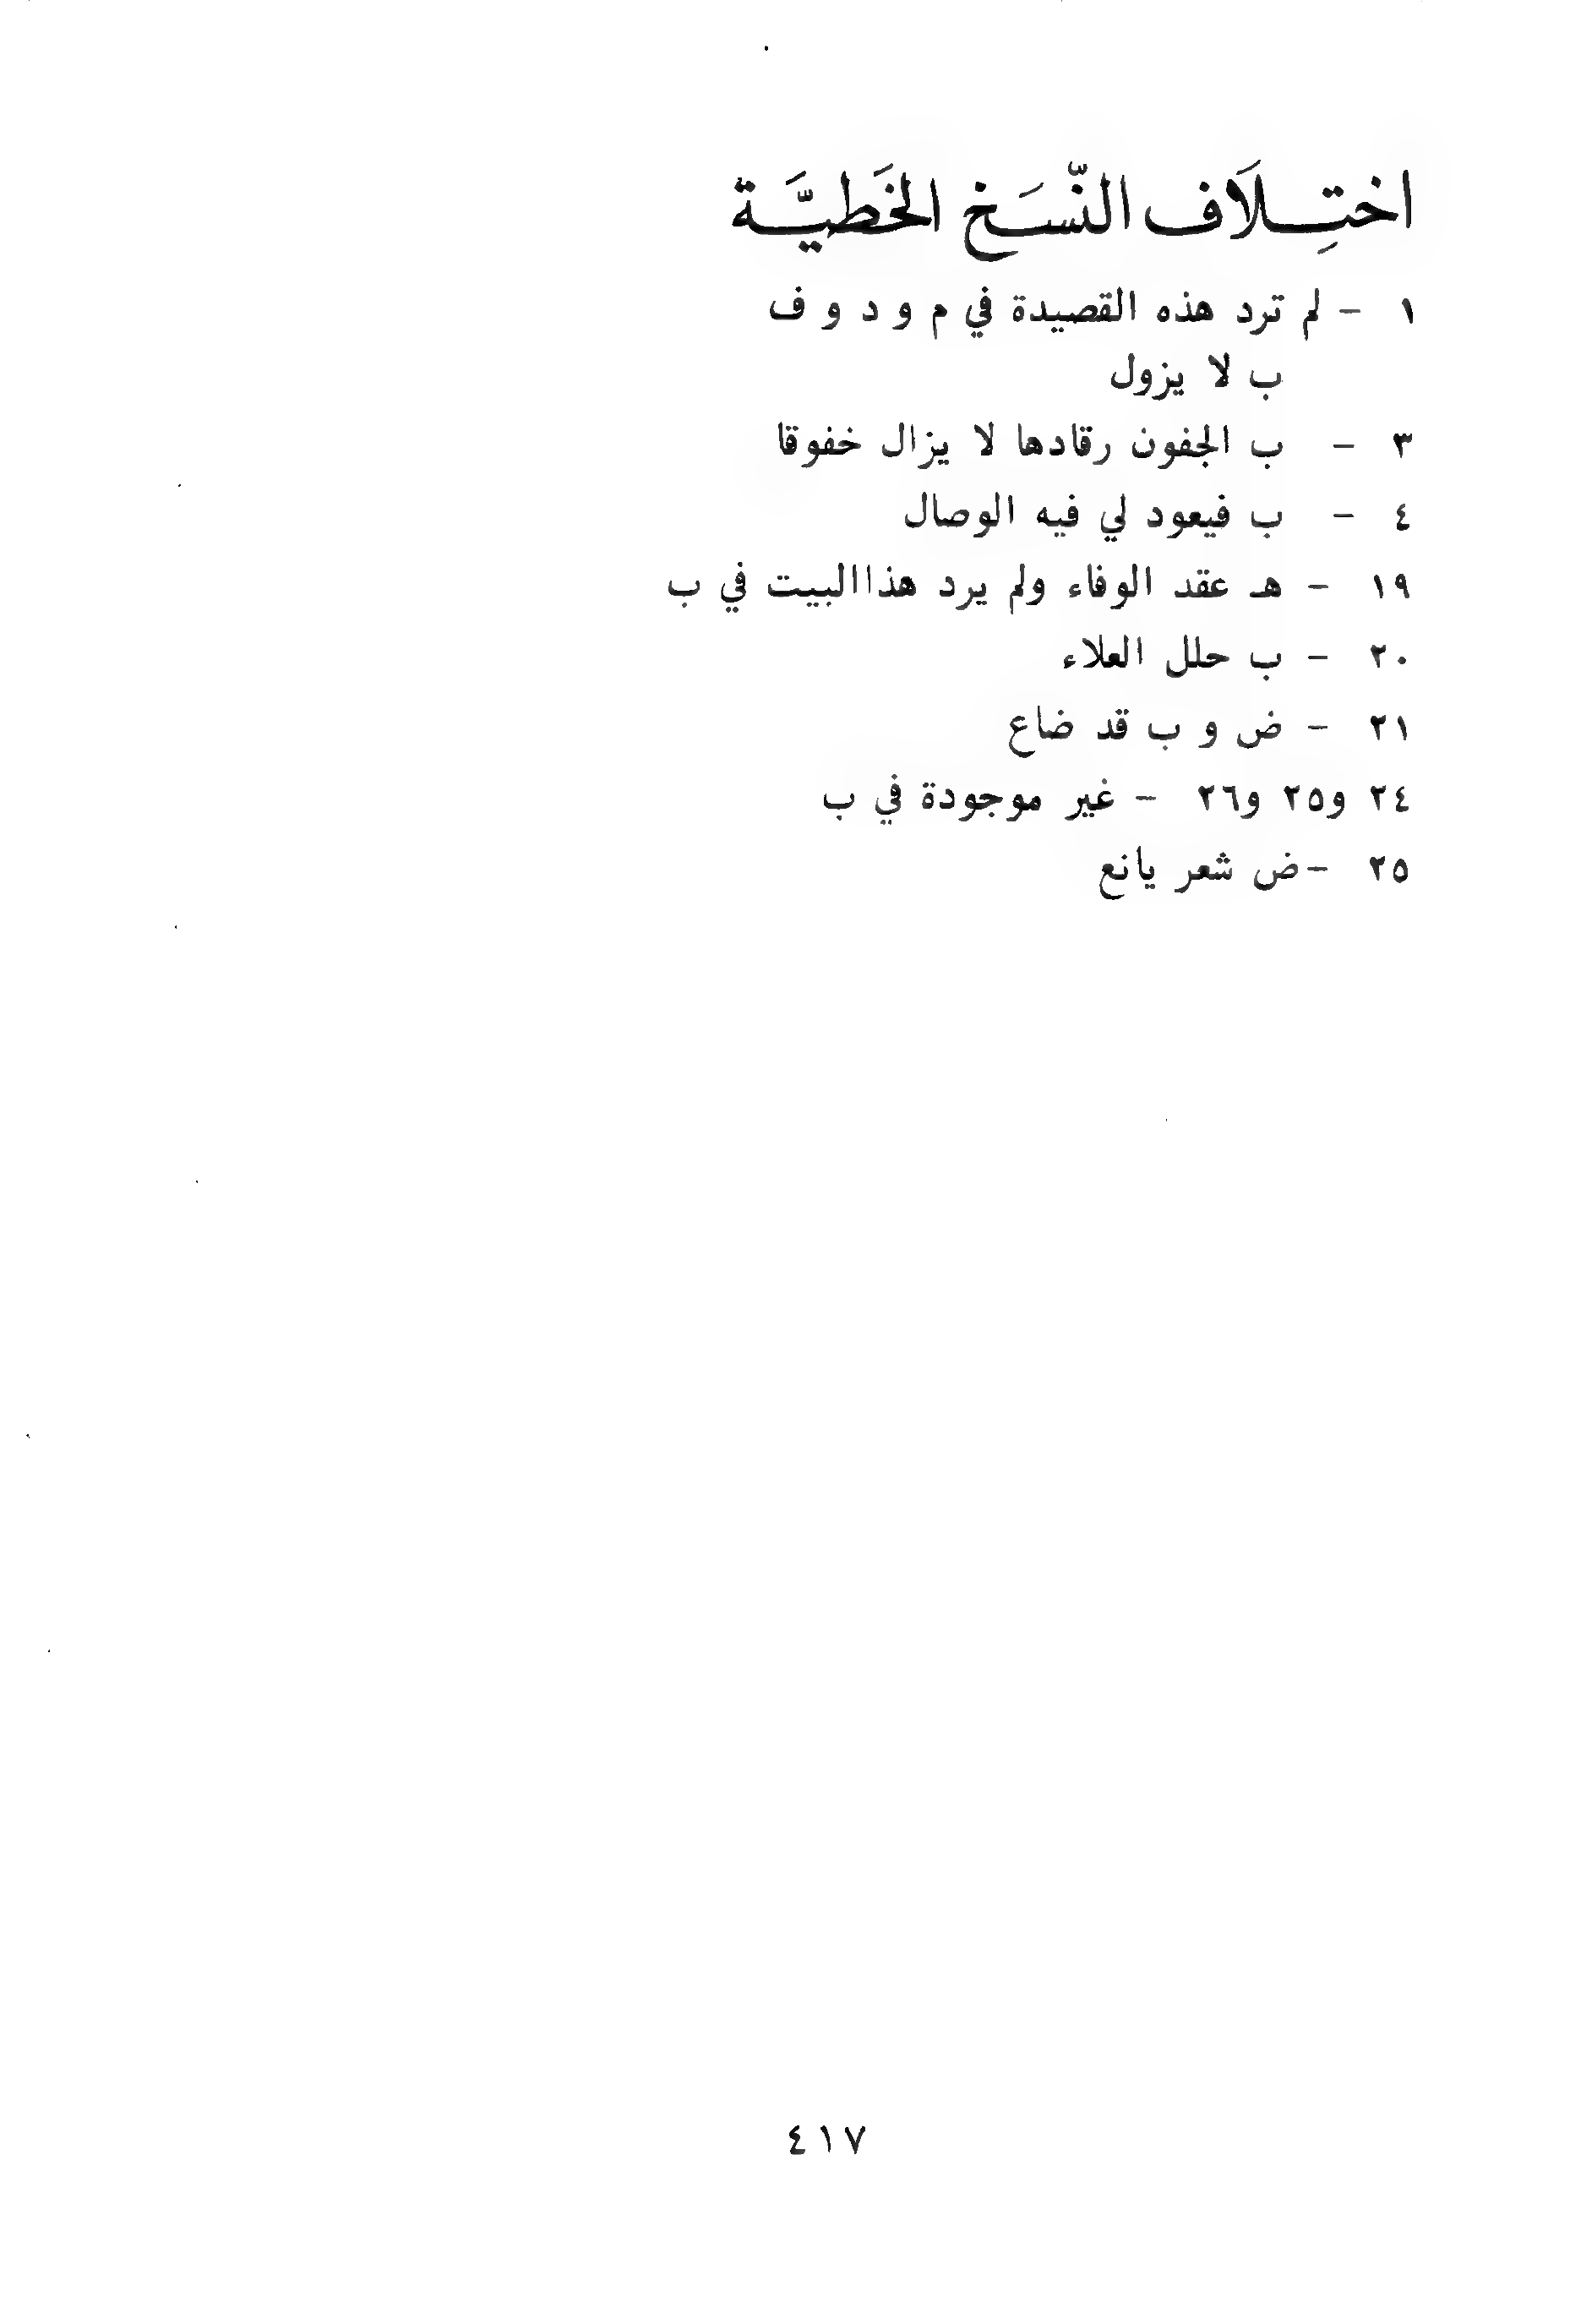 اختِلَاف النّسَخ الخَطيَّة
١ - لم ترد هذه القصيدة في م و د و ف
ب لا يزول
٣ - ب الجفون رقادها لا يزال خفوقا
٤ - ب فيعود لي فيه الوصال
١٩ - هـ عقد الوفاء ولم يرد هذاالبيت في ب
٢٠ - ب حلل العلاء
٢١ - ض و ب قد ضاع
٢٤ و٢٥ و٢٦ - غير موجودة في ب
٢٥ - ض شعر يانع
٤١٧